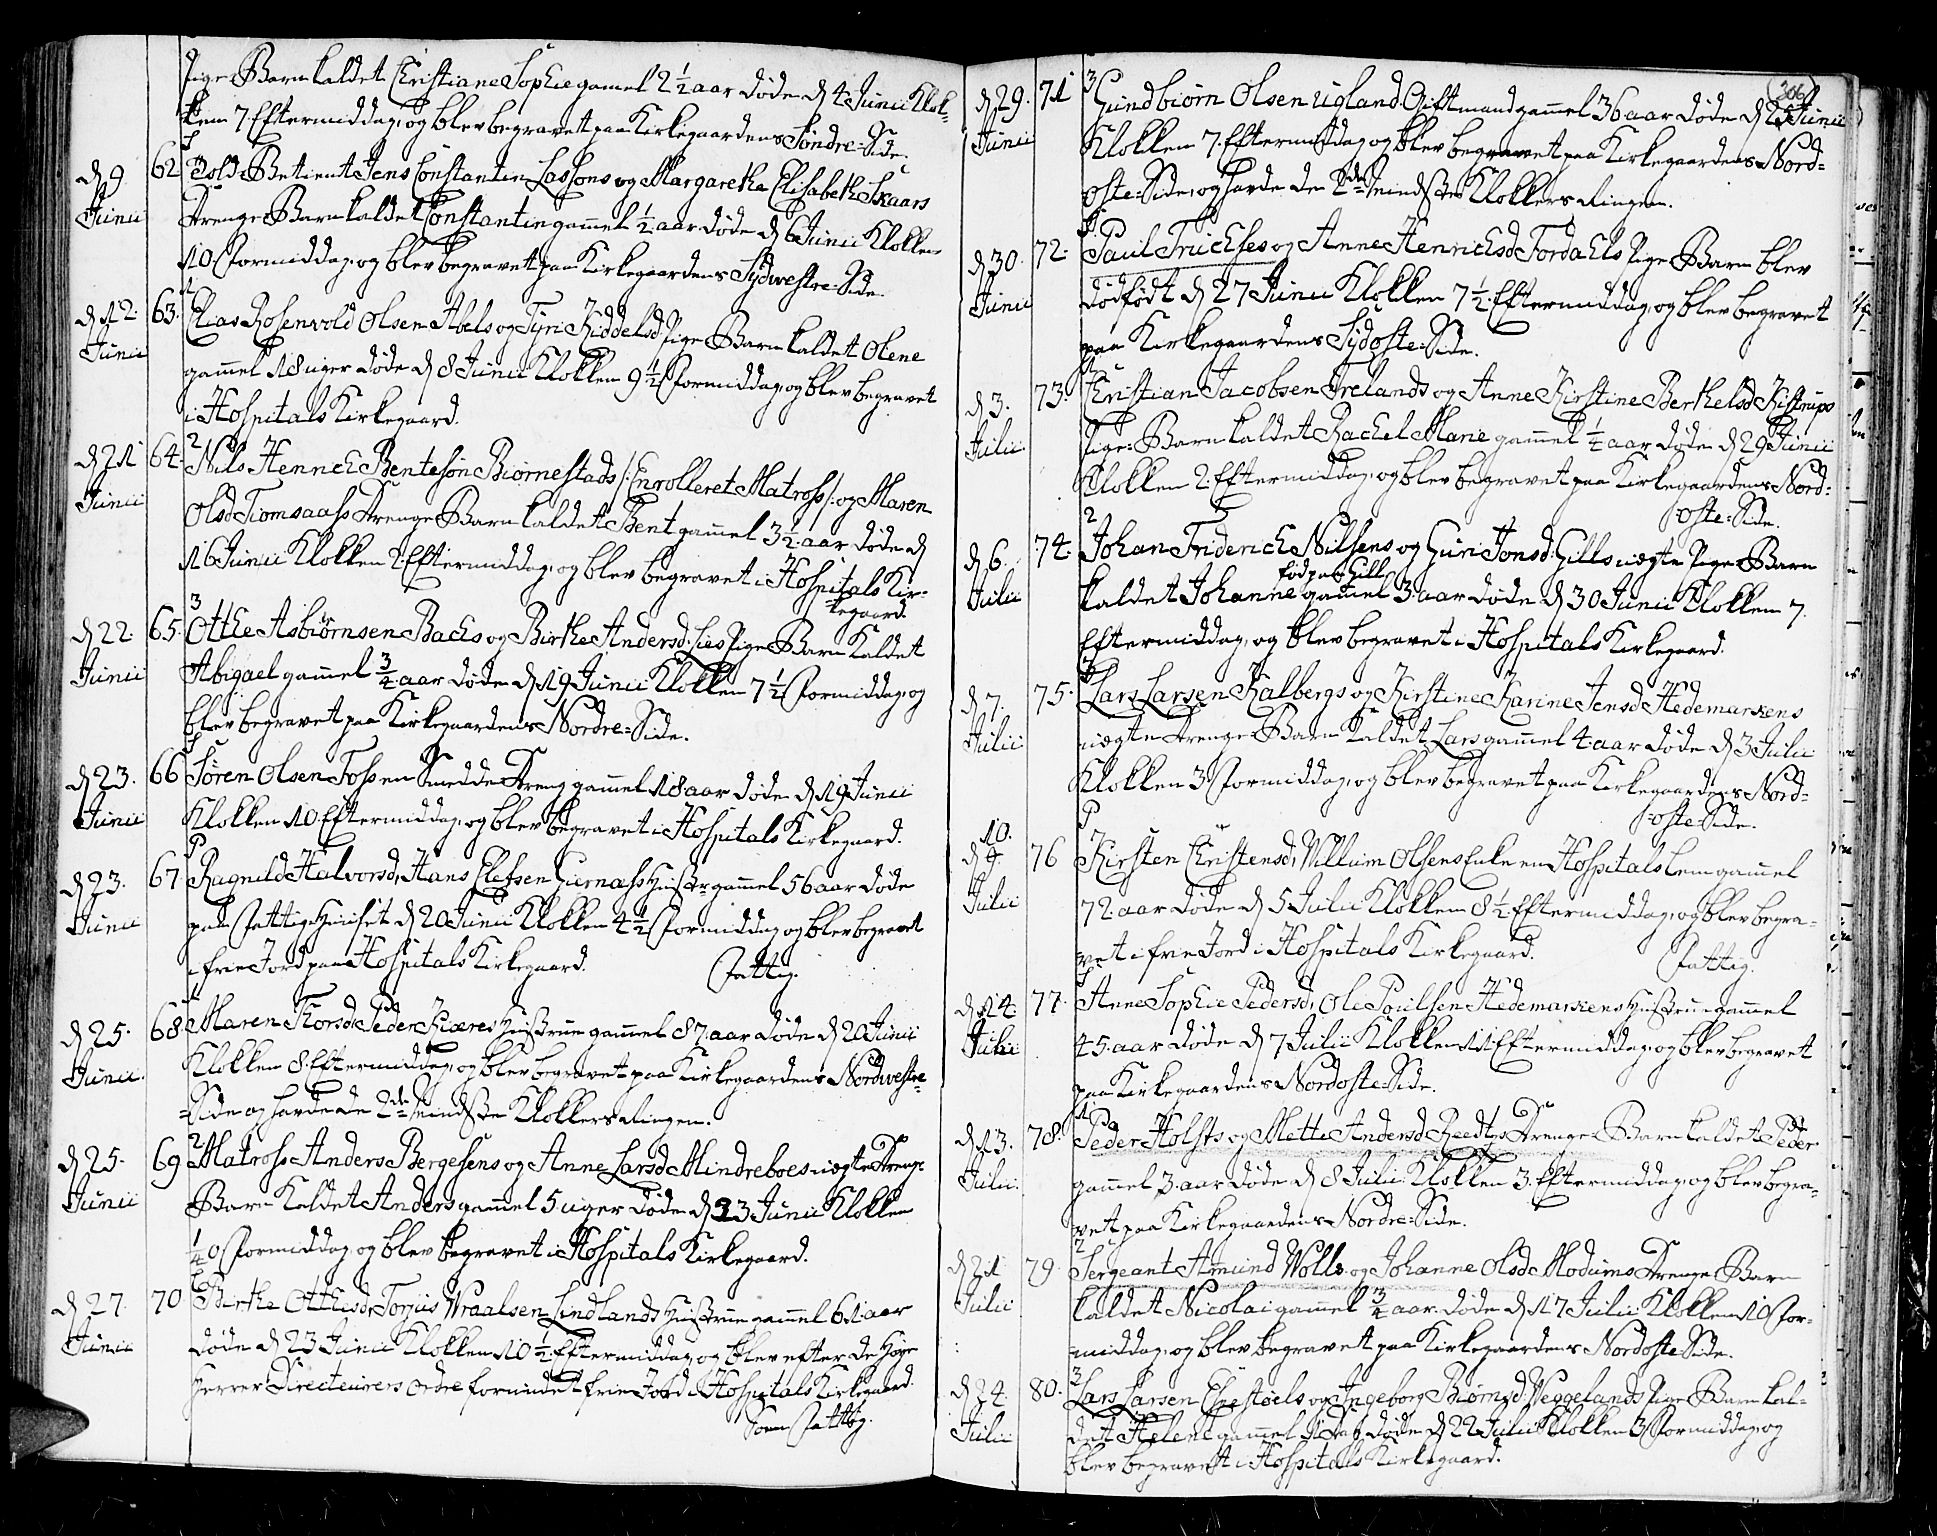 Pige Barn kaldet Christiane Sophie gamel 2 1/2 aar døde d 4 Junii Klok-
ken 7 Eftermiddag, og blev begravet paa Kirkegaardens Søndre-Side.
d 9 Junii 62 Told-Betient Jens Constantin Lassons og Margaretha Elisabeth Skaars
Drenge Barn kaldet Constantin gammel 1/2 aar døde d 6 Junii Klokken
10 Formiddag, og blev begravet paa Kirkegaardens Sydwestre-Side.
d 12 Junii 63. Elias Rosenvold Olsen Abels og Tyri Kiddelsd Pige Barn kaldet Olene
gammel 18 uger døde d 8 Junii Klokken 9 1/2 Formiddag, og blev begravet
i Hospitals Kirkegaard.
d 21 Junii 64. 2 Nils Hennech Bentesøn Biørnestads /: Enrolleret Matross :/ og Maren
Olsd Tiomsaass Drenge Barn kaldet Bent gammel 3 1/2 aar døde d
16 Junii Klokken 2 Eftermiddag, og blev begravet i Hospitals Kir-
kegaard.
d 22 Junii 65. 3 Otthe Asbiørnsen Bachs og Birthe Andersd: Lies Pige Barn Kaldet
Abigael gammel 3/4 aar døde d 19 Junii Klokken 7 1/2 Formiddag, og
blev begravet paa Kirkegaardens Nordre-Side.
d 23. Junii 66 Søren Olsen Foss en Smedde Dreng gammel 18 aar døde d 19 Junii
Klokken 10 Eftermiddag, og blev begravet i Hospitals Kirkegaard.
d 23. Junii 67 Ragnild Halvorsd, Hans Elefsen Giernæss Hustr gammel 56 aar døde
paa Fattige Huuset d 20 Junii Klokken 4 1/2 Formiddag og blev begravet
i frie Jord paa Hospitals Kirkegaard. Fattig.
d 25. Junii 68 Maren Thorsd Peder Kiæres Hustrue gammel 87 aar døde d 20 Junii
Klokken 8 Eftermiddag, og blev begravet paa Kirkegaardens Nordwestre-
Side og havde de 2de mindste Klokkers Ringen.
d 25. Junii 69 2 Matross Anders Bergesens og Anne Larsd Mindreboes uægte Drenge
Barn Kaldet Anders gammel 5 uger døde d 23 Junii Klokken
10 Formiddag, og blev begravet i Hospitals Kirkegaard.
d 27. Junii 70 Birthe Otthesdr Torjus Wraalsen Lindlands Hustrue gammel 61 aar
døde d 23 Junii Klokken 10 1/2 Eftermiddag, og blev efter de Høye
Herrer Directeurers Ordre forundet frie Jord i Hospitals Kirkegaard.
Som Fattig.
306
d 29. Junii 71 3 Gundbiørn Olsen Ugland Giftmand gammel 36 aar døde d 25 Junii
Klokken 7 Eftermiddag, og blev begravet paa Kirkegaardens Nord-
oste-Side, og havde de 2de mindste Klokkers Ringen.
d 30. Junii 72. Paul Truchses og Anne Henrichsd Fordahls Pige Barn blev
dødfødt d 27 Junii Klokken 7 1/2 Eftermiddag, og blev begravet
paa Kirkegaardens Sydoste-Side.
d 3. Julii 73. Christian Jacobsen Irelands og Anne Kirstine Berthelsd Kistrups
Pige-Barn kaldet Rachel Marie gammel 1/4 aar døde d 29 Junii
Klokken 2 Eftermiddag, og blev begravet paa Kirkegaardens Nord-
oste-Side.
d 6. Julii 74. 2 Johan Friderich Nilsens og Guri Jonsd: Gills uægte Pige Barn
fød paa Gill
kaldet Johanne gammel 3 aar døde d 30 Junii Klokken 7.
Eftermiddag, og blev begravet i Hospitals Kirkegaard.
d 7. Julii 75. Lars Larsen Kalbergs og Kirstine Karine Jensd Hedemarkens
uægte Drenge Barn Kaldet Lars gammel 4 aar døde d 3 Julii
Klokken 3 Formiddag, og blev begravet paa Kirkegaardens Nord-
oste-Side.
10.
d 9. Julii 76 Kirsten Christensd, Willum Olsens Enke en Hospitals Lem gammel
72 aar døde d 5 Julii Klokken 8 1/2 Eftermiddag, og blev begra-
vet i frie Jord i Hospitals Kirkegaard. Fattig.
d 14. Julii 77. Anne Sophie Pedersd, Ole Poulsen Hedemarkens Hustrue gammel
45 aar døde d 7 Julii Klokken 11 Eftermiddag, og blev begravet
paa Kirkegaardens Nordoste-Side.
d 13. Julii. 78. Peder Holsts og Mette Andersd Reedtzs Drenge Barn kaldet Peder
gammel 3 aar døde d 8 Julii Klokken 3. Eftermiddag, og blev begra-
vet paa Kirkegaardens Nordre-Side.
d 21 Julii 79. 2 Sergeant Amund Wolls og Johanne Olsd Modums Drenge Barn
kaldet Nicolai gammel 3/4 aar døde d 17 Julii Klokken 10 For-
middag, og blev begravet paa Kirkegaardens Nordoste Side.
d 24. Julii 80. 3 Lars Larsen Egestøels og Ingeborg Biørnsd Weggelands Pige Barn kal-
det Helene gammel 1 Dag døde d 22 Julii Klokken 3 Formiddag, og
blev begravet i Hospitals Kirkegaard.